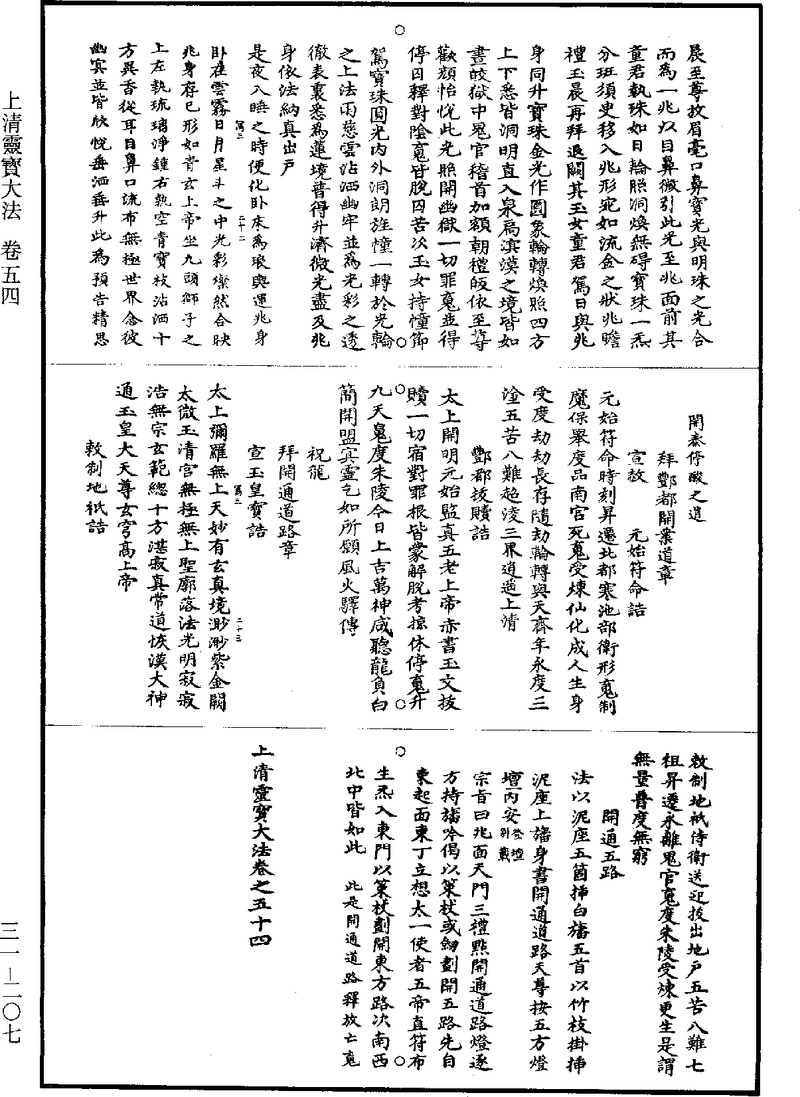 上清靈寶大法　卷五四
三一—二〇七
晨至尊放眉毫口鼻寶光與明珠之光合
而為一兆以目鼻微引此光至兆面前其
童君執珠如日輪照洞煥無碍寶珠一炁
分班須臾移入兆形宛如流金之狀兆瞻
禮玉晨再拜退關其玉女童君駕日與兆
身同升寶珠金光作圓象輪轉煥照四方
上下悉皆洞明直入泉扃溟漠之境皆如
晝皎獄中鬼官稽首加額朝禮皈依至尊
歡顏怡悅此光照開幽獄一切罪䰟並得
停囚釋對陰䰟皆脫囚苦次玉女持幢節
駕寶珠圓光內外洞朗旌幢一轉於光輪
之上法雨慈雲沾洒幽牢並為光彩之透
徹表裏悉為蓮境普得升濟微光盡及兆
身依法納真出戶
是夜入睡之時便化卧床為琅輿運兆身
卧在雲霧日月星斗之中光彩燦然合映
兆身存已形如青玄上帝坐九頭獅子之
上左執琉璃淨鍾右執空青寶枝沾洒十
方異香從耳目鼻口流布無極世界念彼
幽冥並皆欣悅垂洒垂升此為預告精思
開泰停酸之道
拜酆都開業道章
宣敕　元始符命誥
元始符命時刻昇遷北都寒池部衛形䰟制
魔保舉度品南宮死䰟受煉仙化成人生身
受度劫劫長存隨劫輪轉與天齊年永度三
塗五苦八難超淩三界逍遙上清
酆都拔贖誥
太上開明元始監真五老上帝赤書玉文拔
贖一切宿對罪根皆蒙解脫考掠休停䰟升
九天䰟度朱陵今日上吉萬神咸聽龍負白
簡開盟冥靈乞如所願風火驛傳
祝龍
拜開通道路章
宣玉皇寶誥
太上彌羅無上天妙有玄真境渺渺紫金闕
太微玉清宮無極無上聖廓落法光明寂寂
浩無宗玄範總十方湛寂真常道恢漠大神
通玉皇大天尊玄穹高上帝
敕制地祇誥
敕制地祇侍衛送迎拔出地戶五苦八難七
祖昇遷永離鬼官䰟度朱陵受煉更生是謂
無量普度無窮
開通五路
法以泥座五箇插白旛五首以竹枝掛插
泥座上旛身書開通道路天尊按五方燈
壇內安登壇別戴
宗旨曰兆面天門三禮點開通道路燈逐
方持旛吟偈以策杖或劒劃開五路先自
東起面東丁立想太一使者五帝直符布
生炁入東門以策杖劃開東方路次南西
北中皆如此　此是開通道路釋放亡䰟
上清靈寶大法卷之五十四